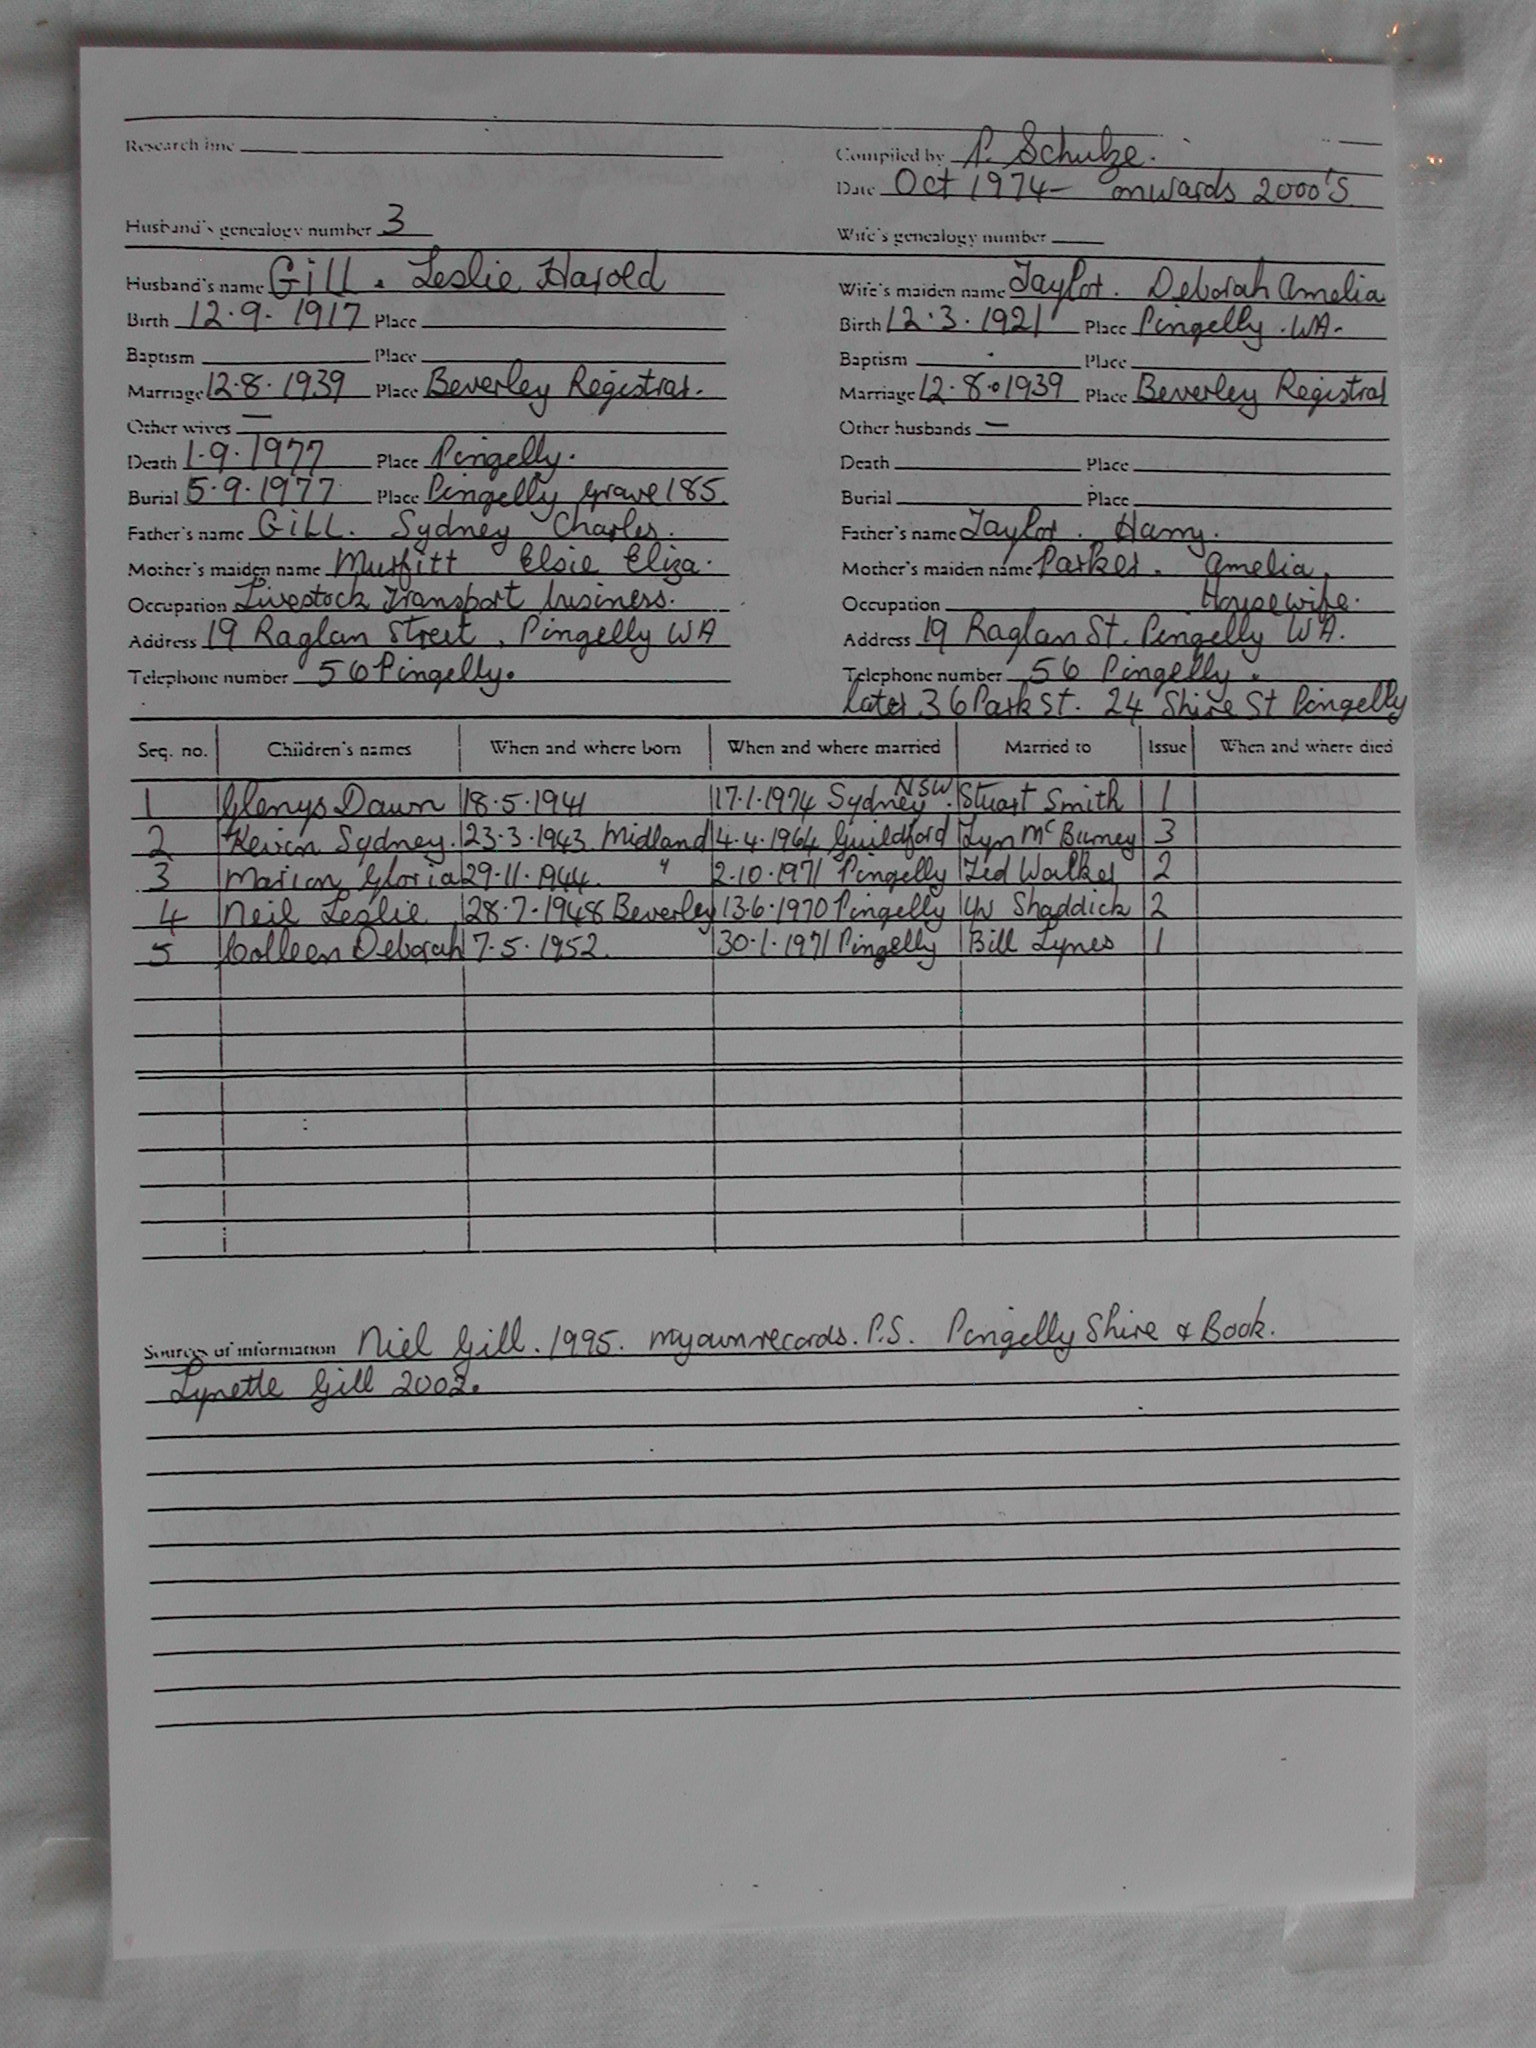 Research line
Compiled by P. Schulze.
Date Oct 1974 - onwards 2000's
Husband's genealogy number 3
Wife's genealogy number
Husband's name Gill. Leslie Harold
Wife's maiden name Taylor. Deborah Amelia
Birth 12.9.1917 Place
Birth 12.3.1921 Place Pingelly. WA.
Baptism Place
Baptism Place
Marriage 12.8.1939 Place Beverley Registrar.
Marriage 12.8.1939 Place Beverley Registrar
Other wives —
Other husbands —
Death 1.9.1977 Place Pingelly.
Death Place
Burial 5.9.1977 Place Pingelly grave 185.
Burial Place
Father's name Gill. Sydney Charles.
Father's name Taylor. Harry.
Mother's maiden name Murfitt Elsie Eliza.
Mother's maiden name Parker. Amelia.
Occupation Livestock Transport business.
Occupation Housewife.
Address 19 Raglan Street, Pingelly WA
Address 19 Raglan St. Pingelly WA.
Telephone number 56 Pingelly.
Telephone number 56 Pingelly.
later 36 Park St. 24 Shire St Pingelly
Seq. no. Children's names When and where born When and where married Married to Issue When and where died
1 Glenys Dawn 18.5.1941 17.1.1974 Sydney NSW. Stuart Smith 1
2 Kevin Sydney. 23.3.1943 Midland 4.4.1964 Guildford Lyn McBurney 3
3 Marion Gloria 29.11.1944. " 2.10.1971 Pingelly Ted Walker 2
4 Neil Leslie 28.7.1948 Beverley 13.6.1970 Pingelly Shaddick 2
5 Colleen Deborah 7.5.1952. 30.1.1971 Pingelly Bill Lynes 1
Sources of information Niel Gill. 1995. my own records. P.S. Pingelly Shire & Book.
Lynette Gill 2002.